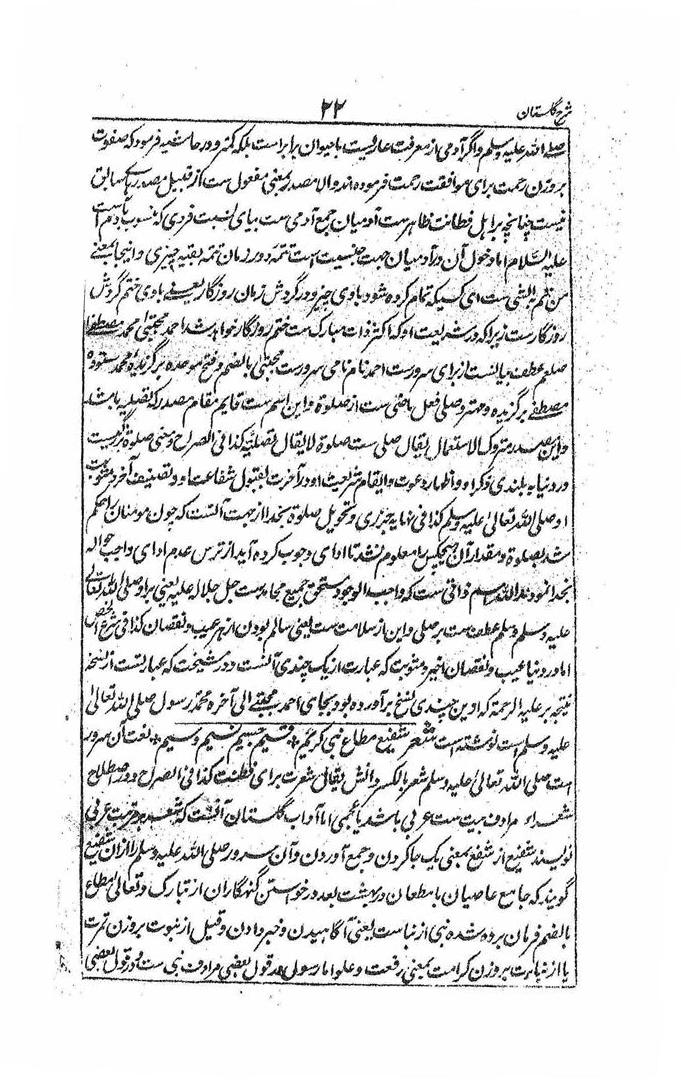 شرح گلستان
۲۲
صلے اللہ علیہ وسلم و اگر آدمی از معرفت عاریست با حیوان برابر است بلکہ کمتر و در حاشیہ فرمودہ کہ صفوت
بر وزن رحمت برای موافقت رحمت فرمودہ اند و الا مصدر بمعنی مفعول ست از قبیل مصدر
نیست چنانچہ بر اہل فطانت ظاہر ست آدمیان جمع آدمی ست بیای نسبت فردی کہ منسوب بآدم است
علیہ السلام اما دخول آن در آدمیان جہت جنسیت است تتمہ دور زمان تتمہ بقیہ چیزی و اینجا بمعنے
من تتم بہ الشی ست ای کسیکہ تمام کردہ شود باوی چیز و در گردش زمان روزگار یعنے باوی ختم گردش
روزگارست زیرا کہ در شریعت او کہ اکثر ذات مبارک ست ختم روزگار خواہد شد احمد مجتبیٰ محمد مصطفےٰ
صلعم عطف بیانست از برای سرورست احمد نام نامی سرورست مجتبیٰ بالضم و فتح موحدہ برگزیدہ محمد ستودہ
مصطفےٰ برگزیدہ و مہتر و صلی فعل ماضی ست از صلوٰة و این اسم ست قایم مقام مصدر کہ تصلیہ باشد
و این مصدر متروک الاستعمال یقال صلی ست صلوٰة لا یقال تصلیة کذا فی الصراح و معنی صلوٰة
در دنیا بہ بلندی ذکر او و اظہار دعوت و ابقاء شریعت او در آخرت بقبول شفاعت او و تضعیف آخر و مثوبت
او صلی اللہ تعالیٰ علیہ وسلم کذا فی نہایہ جزری و تحویل صلوٰة بخدا از جہت آنست کہ چون مومنان را حکم
شد بصلوٰة و مقدار آن ہیچکس را معلوم نشد تا ادای وجوب کردہ آید از ترس عدم ادای واجب حوالہ
بخدا نمودند اللہ اسم ذاتی ست کہ واجب الوجود مستحق جمیع محامدست جل جلالہ علیہ یعنی براو صلی اللہ تعالیٰ
علیہ وسلم وسلم عطف ست بر صلی و این از سلامت ست یعنی سالم بودن از ہر عیب و نقصان کذا فی شرع
اما در دنیا عیب و نقصان اخیر و مثوبت کہ عبارت از یک چندی آنست و در شیخت کہ عبارتست از نسخہ
نتیجہ بر علیہ الرحمة کہ او بن چندی شیخ برآوردہ بود بجای احمد مجتبیٰ الی آخرہ محمد رسول صلی اللہ تعالیٰ
علیہ وسلم ست نوشتہ است شعر شفیع مطاع نبی کریم * قسیم جسیم نسیم وسیم * نعت آن سرور
است صلی اللہ تعالیٰ علیہ وسلم شعر بالکسر دانش یقال شعرت برای فطنت کذا فی الصراح و در اصطلاح
شعراء مرادف بیت ست عربی باشد یا عجمی اما آداب گلستان آنست کہ شعر بر بیت عربی
نویسند شفیع از شفع بمعنی یک جا کردن و جمع آوردن و آن سرور صلی اللہ علیہ وسلم را ازان شفیع
گویند کہ جامع عاصیان با مطیعان در بہشت بعد درخواستن گنہگاران از تبارک و تعالیٰ مطاع
بالضم فرمان بردہ شدہ نبی از نباست یعنی آگاہیدن و خبر دادن و قیل از نبوت بر وزن ثمرت
یا از نباوت بر وزن کرامت بمعنی رفعت و علو اما رسول در قول بعضی مرادف نبی ست و در قول بعضی